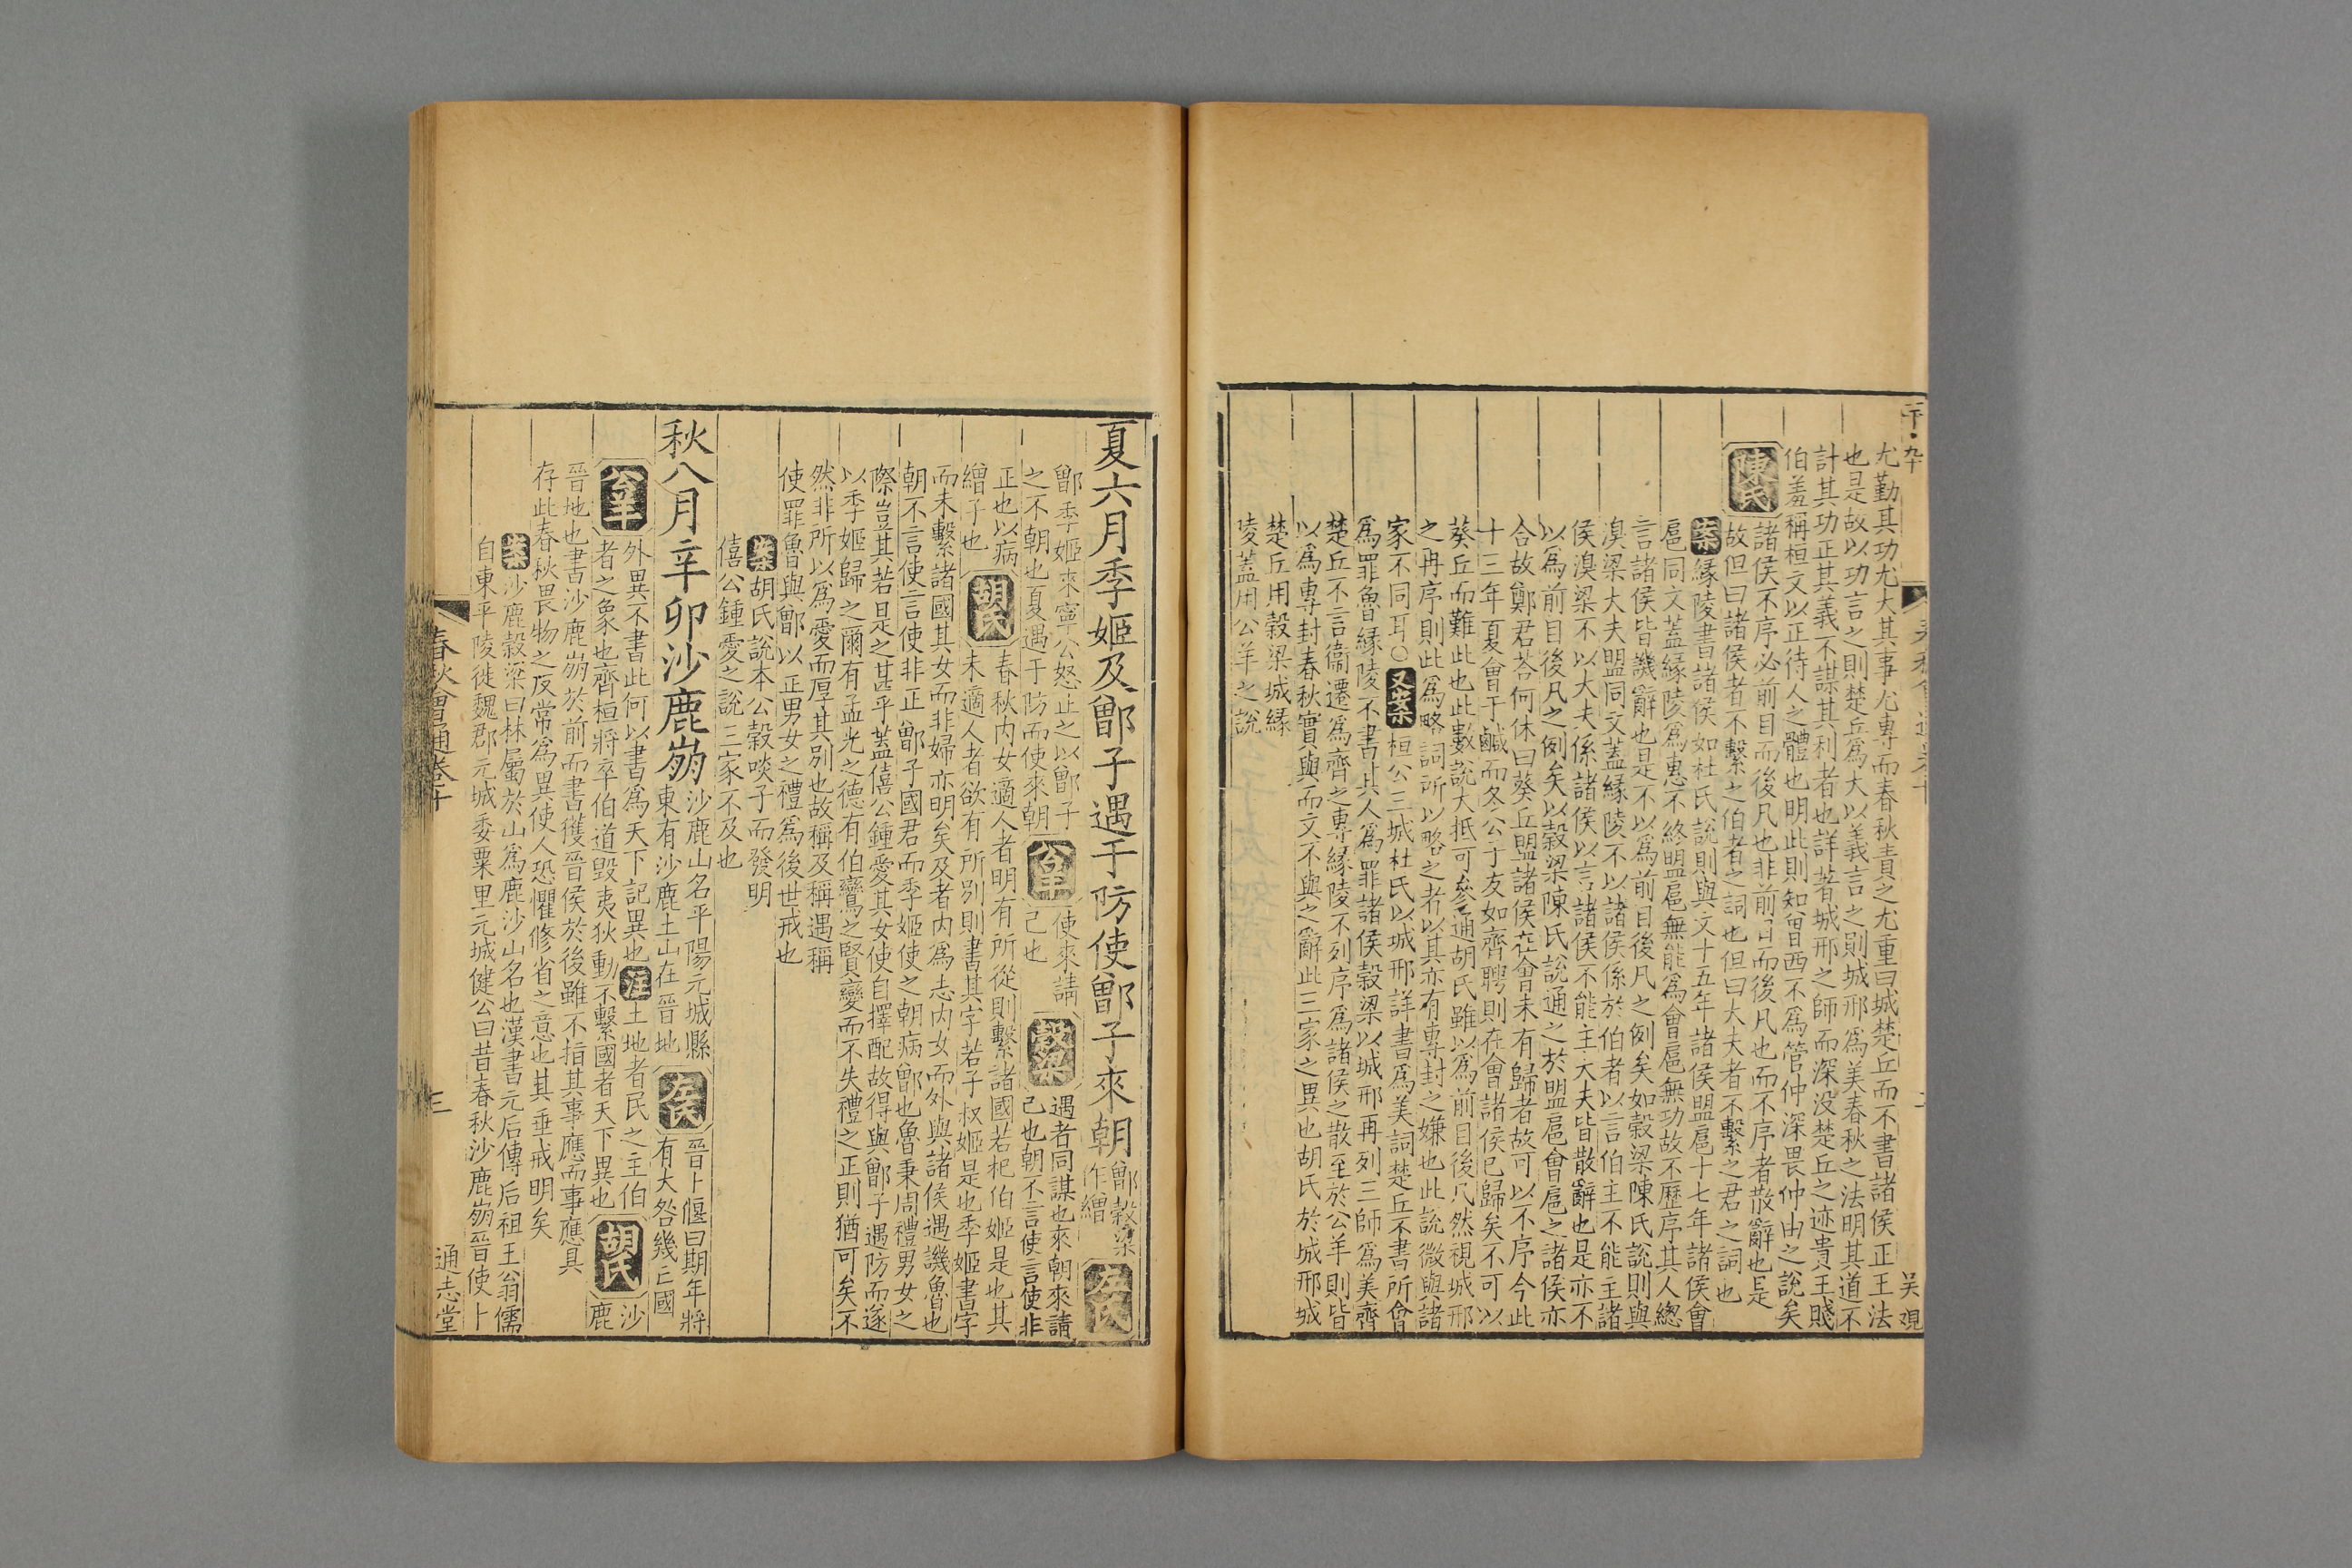 尤勤其功尤大其事尤專而春秋責之尤重曰城楚丘而不書諸侯正王法
也是故以功言之則楚丘爲大以義言之則城邢爲美春秋之法明其道不
計其功正其義不謀其利者也詳著城邢之師而深没楚丘之迹貴王賤
伯羞稱桓文以正待人之體也明此則知曾西不爲管仲深畏仲由之說矣
陳氏
諸侯不序必前目而後凡也非前目而後凡也而不序者散辭也是
故但曰諸侯者不繫之伯者之詞也但曰大夫者不繫之君之詞也
案縁陵書諸侯如杜氏說則與文十五年諸侯盟扈十七年諸侯會
扈同文蓋縁陵爲惠不終盟扈無能爲會扈無功故不歷序其人總
言諸侯皆譏辭也是不以爲前目後凡之例矣如穀梁陳氏說則與
溴梁大夫盟同文蓋縁陵不以諸侯係於伯者以言伯主不能主諸
侯溴梁不以大夫係諸侯以言諸侯不能主大夫皆散辭也是亦不
以爲前目後凡之例矣以穀梁陳氏說通之於盟扈會扈之諸侯亦
合故鄭君荅何休曰葵丘盟諸侯在會未有歸者故可以不序今此
十三年夏會于鹹而冬公子友如齊聘則在會諸侯已歸矣不可以
葵丘而難此也此數說大抵可參通胡氏雖以爲前目後凡然視城邢
之再序則此爲略詞所以略之者以其亦有專封之嫌也此說微與諸
家不同耳○又案桓公三城杜氏以城邢詳書爲美詞楚丘不書所會
爲罪魯縁陵不書其人爲罪諸侯穀梁以城邢再列三師爲美齊
楚丘不言衞遷爲齊之專縁陵不列序爲諸侯之散至於公羊則皆
以爲專封春秋實與而文不與之辭此三家之異也胡氏於城邢城
楚丘用穀梁城縁
陵蓋用公羊之說
吴覌
夏六月季姬及鄫子遇于防使鄫子來朝
鄫穀梁
作繒
左氏
鄫季姬來寧公怒止之以鄫子
之不朝也夏遇于防而使來朝
公羊
使來請
己也
穀梁
遇者同謀也來朝來請
己也朝不言使言使非
正也以病
繒子也
胡氏
春秋内女適人者明有所從則繫諸國若杞伯姬是也其
未適人者欲有所別則書其字若子叔姬是也季姬書字
而未繫諸國其女而非婦亦明矣及者内爲志内女而外與諸侯遇譏魯也
朝不言使言使非正鄫子國君而季姬使之朝病鄫也魯秉周禮男女之
際豈其若是之甚乎蓋僖公鍾愛其女使自擇配故得與鄫子遇防而遂
以季姬歸之爾有孟光之德有伯鸞之賢變而不失禮之正則猶可矣不
然非所以爲愛而厚其別也故稱及稱遇稱
使罪魯與鄫以正男女之禮爲後世戒也
案胡氏說本公穀啖子而發明
僖公鍾愛之說三家不及也
秋八月辛卯沙鹿崩
沙鹿山名平陽元城縣
東有沙鹿土山在晉地
左氏
晉卜偃曰期年將
有大咎幾亡國
公羊
外異不書此何以書爲天下記異也注土地者民之主伯
者之象也齊桓將卒伯道毁夷狄動不繫國者天下異也
胡氏
沙
鹿
晉地也書沙鹿崩於前而書獲晉侯於後雖不指其事應而事應具
存此春秋畏物之反常爲異使人恐懼修省之意也其垂戒明矣
案沙鹿穀梁曰林屬於山爲鹿沙山名也漢書元后傳后祖王翁儒
自東平陵徙魏郡元城委粟里元城健公曰昔春秋沙鹿崩晉使卜
春秋會通卷十
三
通志堂